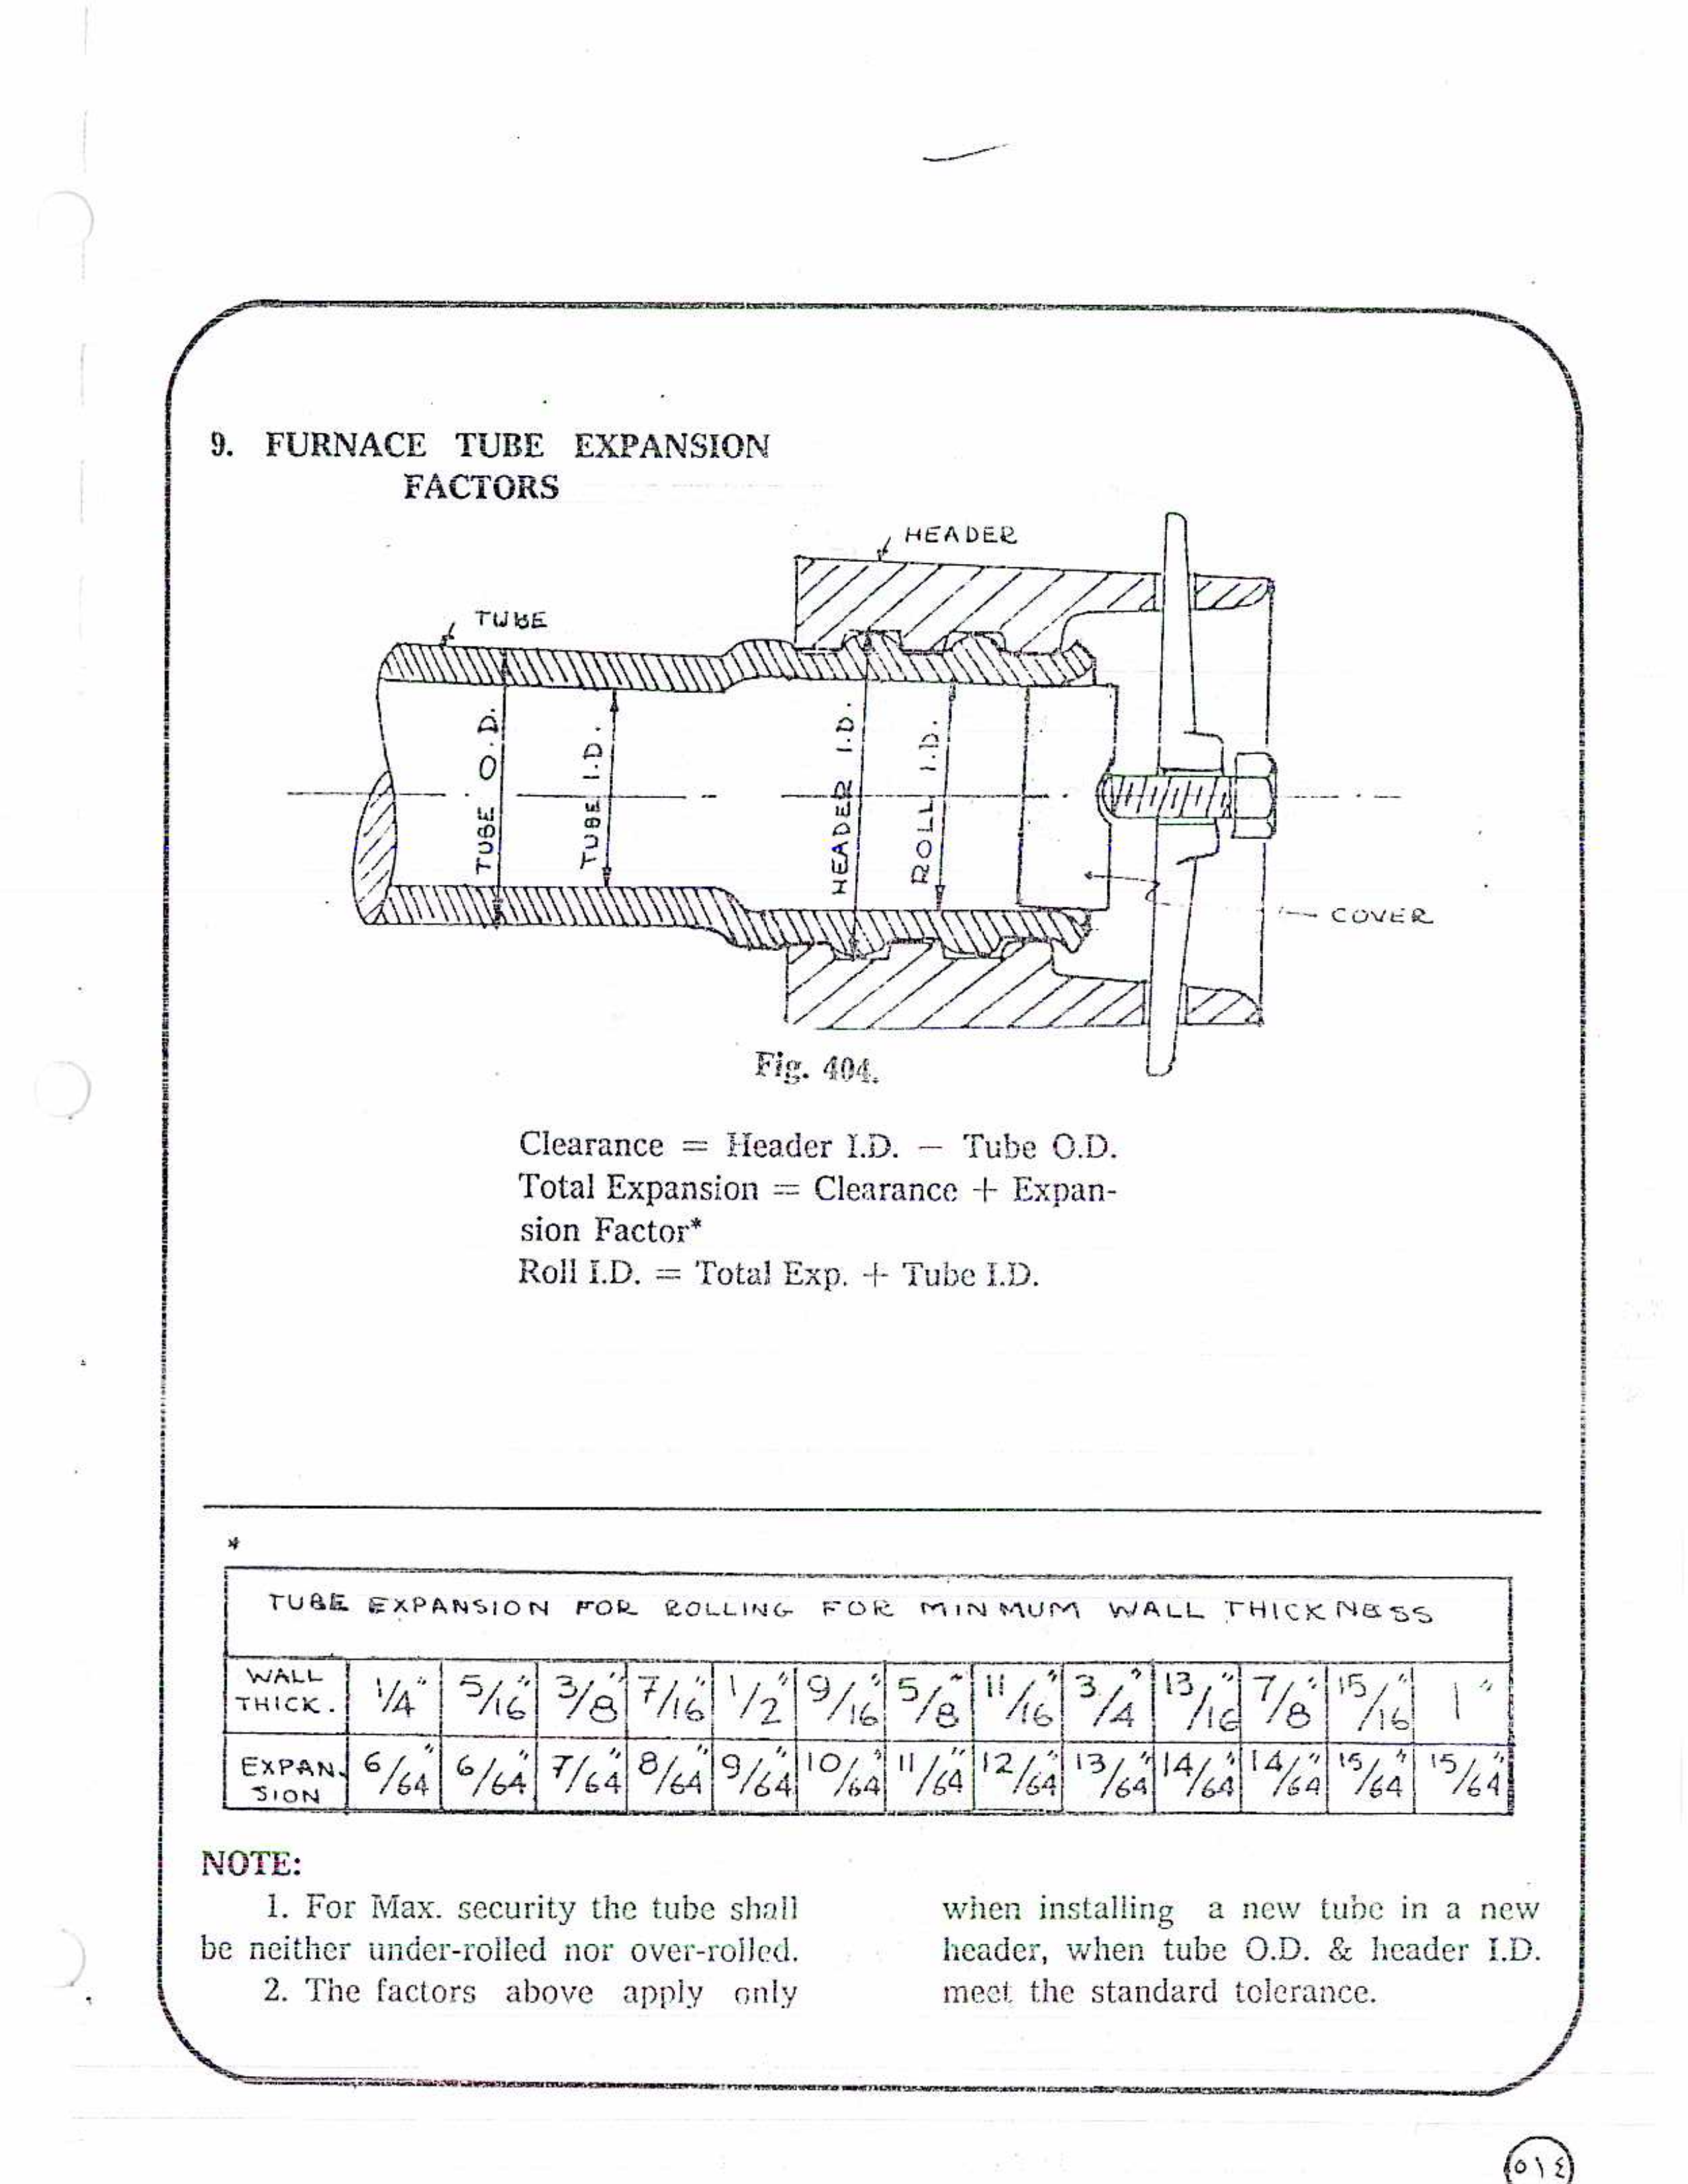 9. FURNACE TUBE EXPANSION
FACTORS
HEADER
TUBE
TUBE O.D.
TUBE I.D.
HEADER I.D.
ROLL I.D.
COVER
Fig. 404.
Clearance = Header I.D. — Tube O.D.
Total Expansion = Clearance + Expan-
sion Factor*
Roll I.D. = Total Exp. + Tube I.D.
*
TUBE EXPANSION FOR ROLLING FOR MINMUM WALL THICKNESS
WALL THICK. 1/4" 5/16" 3/8" 7/16" 1/2" 9/16" 5/8" 11/16" 3/4" 13/16" 7/8" 15/16" 1"
EXPAN-SION 6/64" 6/64" 7/64" 8/64" 9/64" 10/64" 11/64" 12/64" 13/64" 14/64" 14/64" 15/64" 15/64"
NOTE:
1. For Max. security the tube shall
be neither under-rolled nor over-rolled.
2. The factors above apply only
when installing a new tube in a new
header, when tube O.D. & header I.D.
meet the standard tolerance.
٥١٤